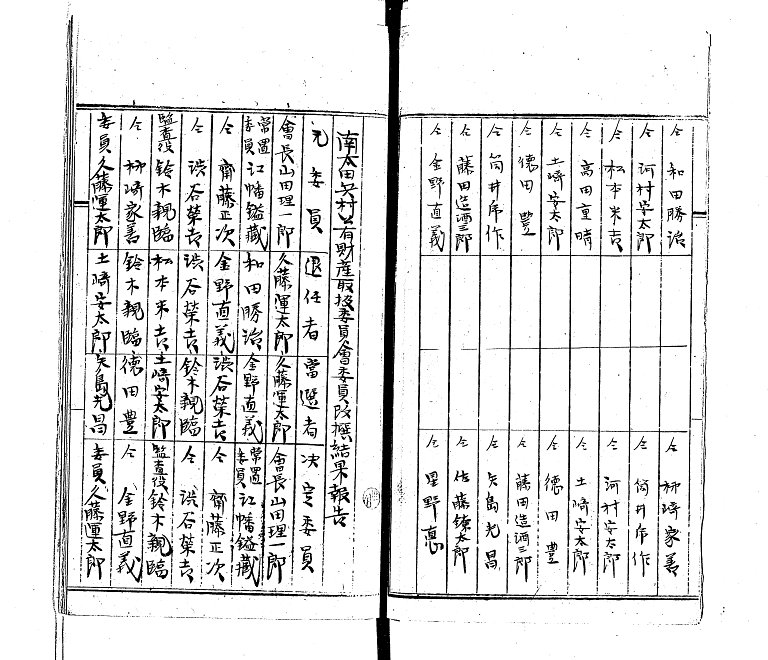 仝 和田勝治 仝 柳崎家善
仝 河村安太郎 仝 筒井席作
仝 松本米吉 仝 河村安太郎
仝 高田重晴 仝 土崎安太郎
仝 土崎安太郎 仝 德田豊
仝 德田豊 仝 藤田造酒三郎
仝 筒井席作 仝 矢島光昌
仝 藤田造酒三郎 仝 佐藤鎮太郎
仝 金野直義 仝 星野恵
南太田 村共有財産取扱委員會委員改撰結果報告
元委員 退任者 當選者 決定委員
會長山田理一郎 久藤運太郎 久藤運太郎 會長山田理一郎
常置委員 江幡鎰藏 和田勝治 金野直義 常置委員 江幡鎰藏
仝 齋藤正次 金野直義 渋谷榮吉 仝 齋藤正次
仝 渋谷榮吉 渋谷榮吉 鈴木親臨 仝 渋谷榮吉
監査役 鈴木親臨 松本米吉 土崎安太郎 監査役 鈴木親臨
仝 柳崎家善 鈴木親臨 德田豊 仝 金野直義
委員 久藤運太郎 土崎安太郎 矢島光昌 委員 久藤運太郎